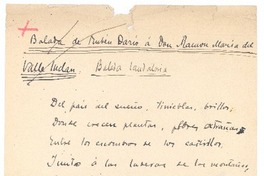 Balada de Rubén Darío á Don Ramon Maria del
Valle Inclan. Balada laudatoria
Del país del sueño, tinieblas, brillos,
Donde crecen plantas, flores extrañas
Entre los escombros de los castillos
Junto á las laderas de las montañas,